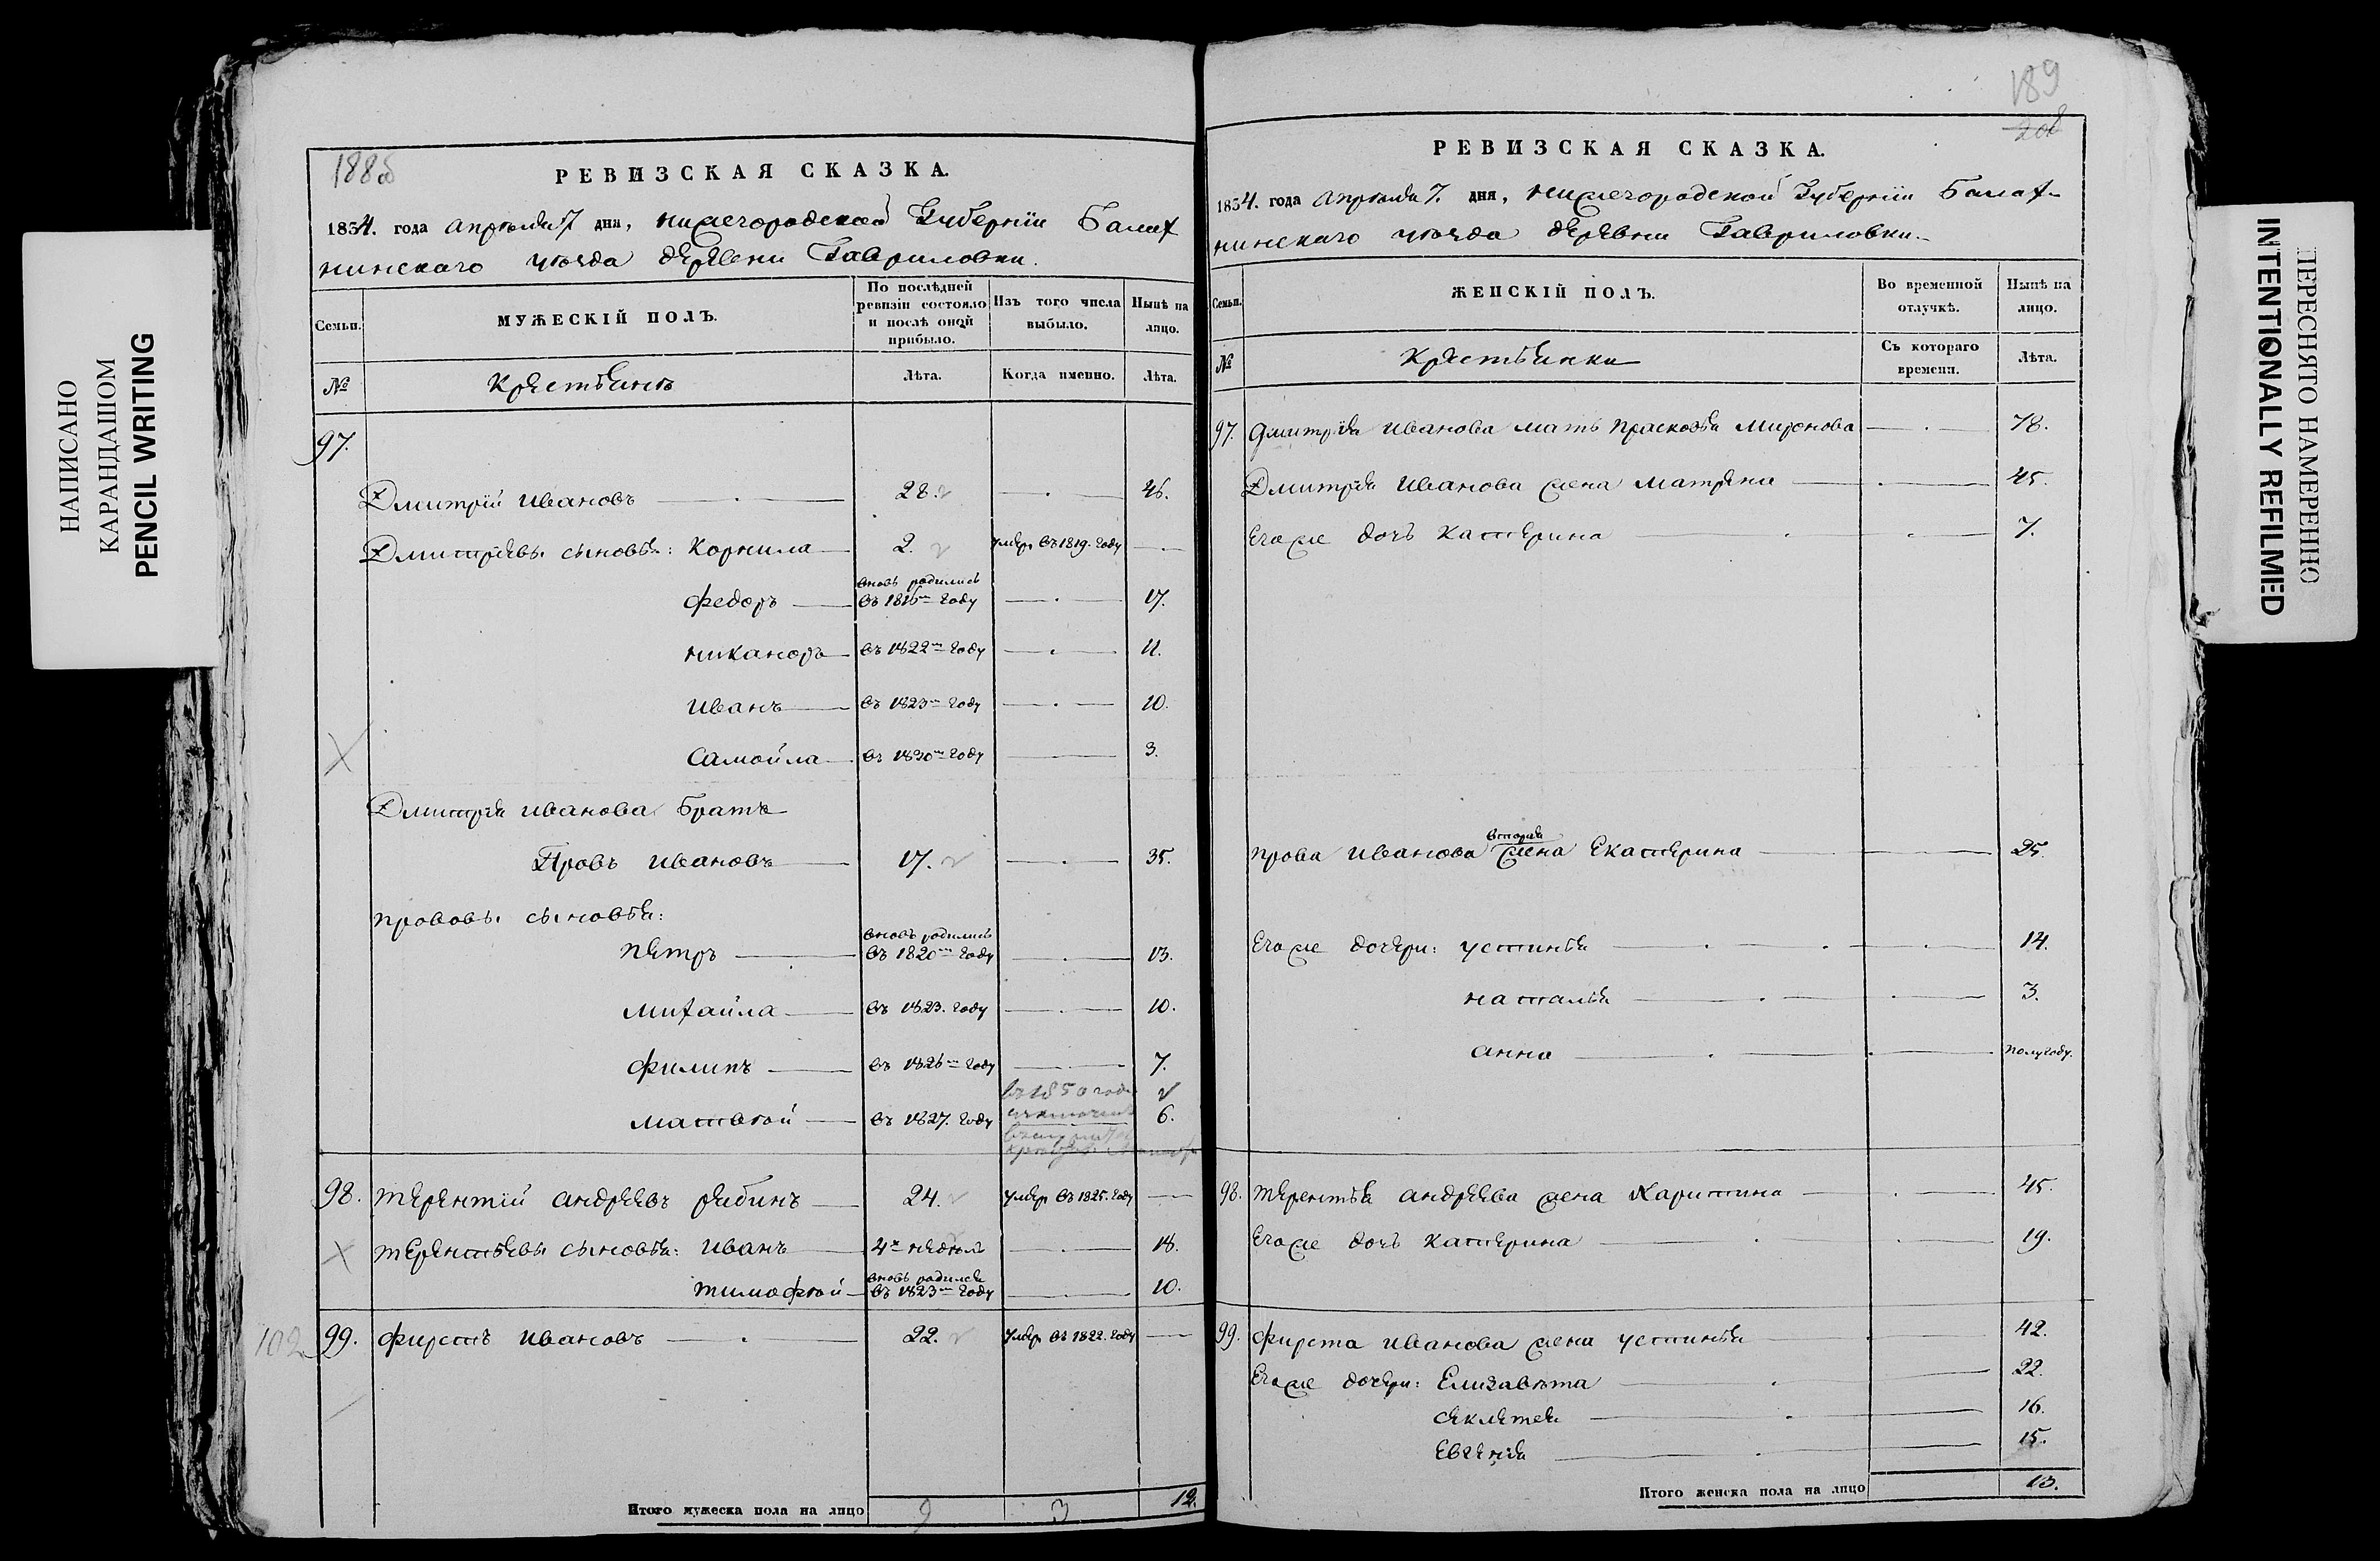 НАПИСАНО
КАРАНДАШОМ
PENCIL WRITING
188об
РЕВИЗСКАЯ СКАЗКА.
1834. года апрѣля 7 дня, нижегородской Губерніи Балах
нинскаго уѣзда деревни Гавриловки.
Семьи. МУЖЕСКІЙ ПОЛЪ. По послѣдней ревизіи состояло и послѣ оной прибыло. Изъ того числа выбыло. Нынѣ на лицо.
№ Крестьянъ Лѣта. Когда именно. Лѣта.
97.
Дмитрій Ивановъ 28. 46.
Дмитріевы сыновья: Корнила 2. умер въ 1819. году
вновь родились
Федоръ въ 1816м году 17.
Никаноръ въ 1822м году 11.
Иванъ въ 1823м году 10.
Самойла въ 1830м году 3.
Дмитрія Иванова Братъ
Провъ Ивановъ 17. 35.
Прововы сыновья:
вновь родились
Петръ въ 1820м году 13.
Михайла въ 1823. году 10.
Филипъ въ 1826м году 7.
въ 1850 году
Матвѣй въ 1827. году 6.
98. Терентій Андреевъ Рябинъ 24. умер въ 1825. году
Терентьевы сыновья: Иванъ 4х недѣль 18.
вновь родился
Тимофѣй въ 1823м году 10.
102 99. Фирстъ Ивановъ 22. умер въ 1822. году
Итого мужеска пола на лицо 9 3 12.
189
208
РЕВИЗСКАЯ СКАЗКА.
1834. года апрѣля 7. дня, нижегородской Губерніи Балах-
нинскаго уѣзда деревни Гавриловки.
Семьи. ЖЕНСКІЙ ПОЛЪ. Во временной отлучкѣ. Нынѣ на лицо.
№ Крестьянки Съ котораго времени. Лѣта.
97. Дмитрія Иванова мать Прасковья Миронова 78.
Дмитрія Иванова жена Матрена 45.
Егоже дочь Катерина 7.
вторая
Прова Иванова жена Екатерина 25.
Егоже дочери: Устинья 14.
Наталья 3.
Анна полугоду.
98. Терентья Андреева жена Харитина 45.
Егоже дочь Катерина 19.
99. Фирста Иванова жена Устинья 42.
Егоже дочери: Елизавѣта 22.
Секлетея 16.
Евгенія 15.
Итого женска пола на лицо 13.
ПЕРЕСНЯТО НАМЕРЕННО
INTENTIONALLY REFILMED